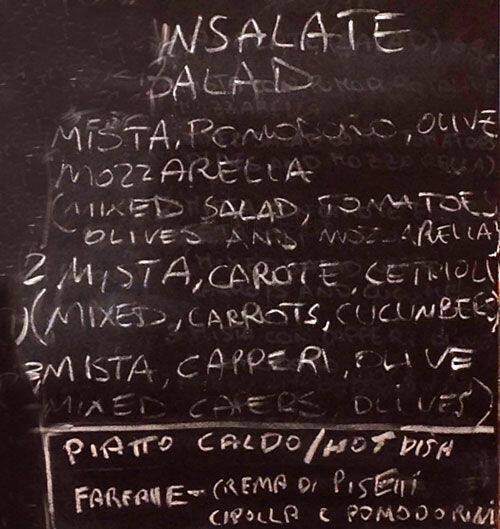 INSALATE
SALAD
MISTA, POMODORO, OLIVE
MOZZARELLA
(MIXED SALAD, TOMATOES
OLIVES AND MOZZARELLA)
2 MISTA, CAROTE, CETRIOLI
(MIXED, CARROTS, CUCUMBERS
3 MISTA, CAPPERI, OLIVE
MIXED CAPERS, OLIVES)
PIATTO CALDO/HOT DISH
FARFALLE - CREMA DI PISELLI
CIPOLLA E POMODORINI